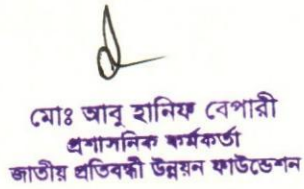 মোঃ আবু হানিফ বেপারী
প্রশাসনিক কর্মকর্তা
জাতীয় প্রতিবন্ধী উন্নয়ন ফাউন্ডেশন